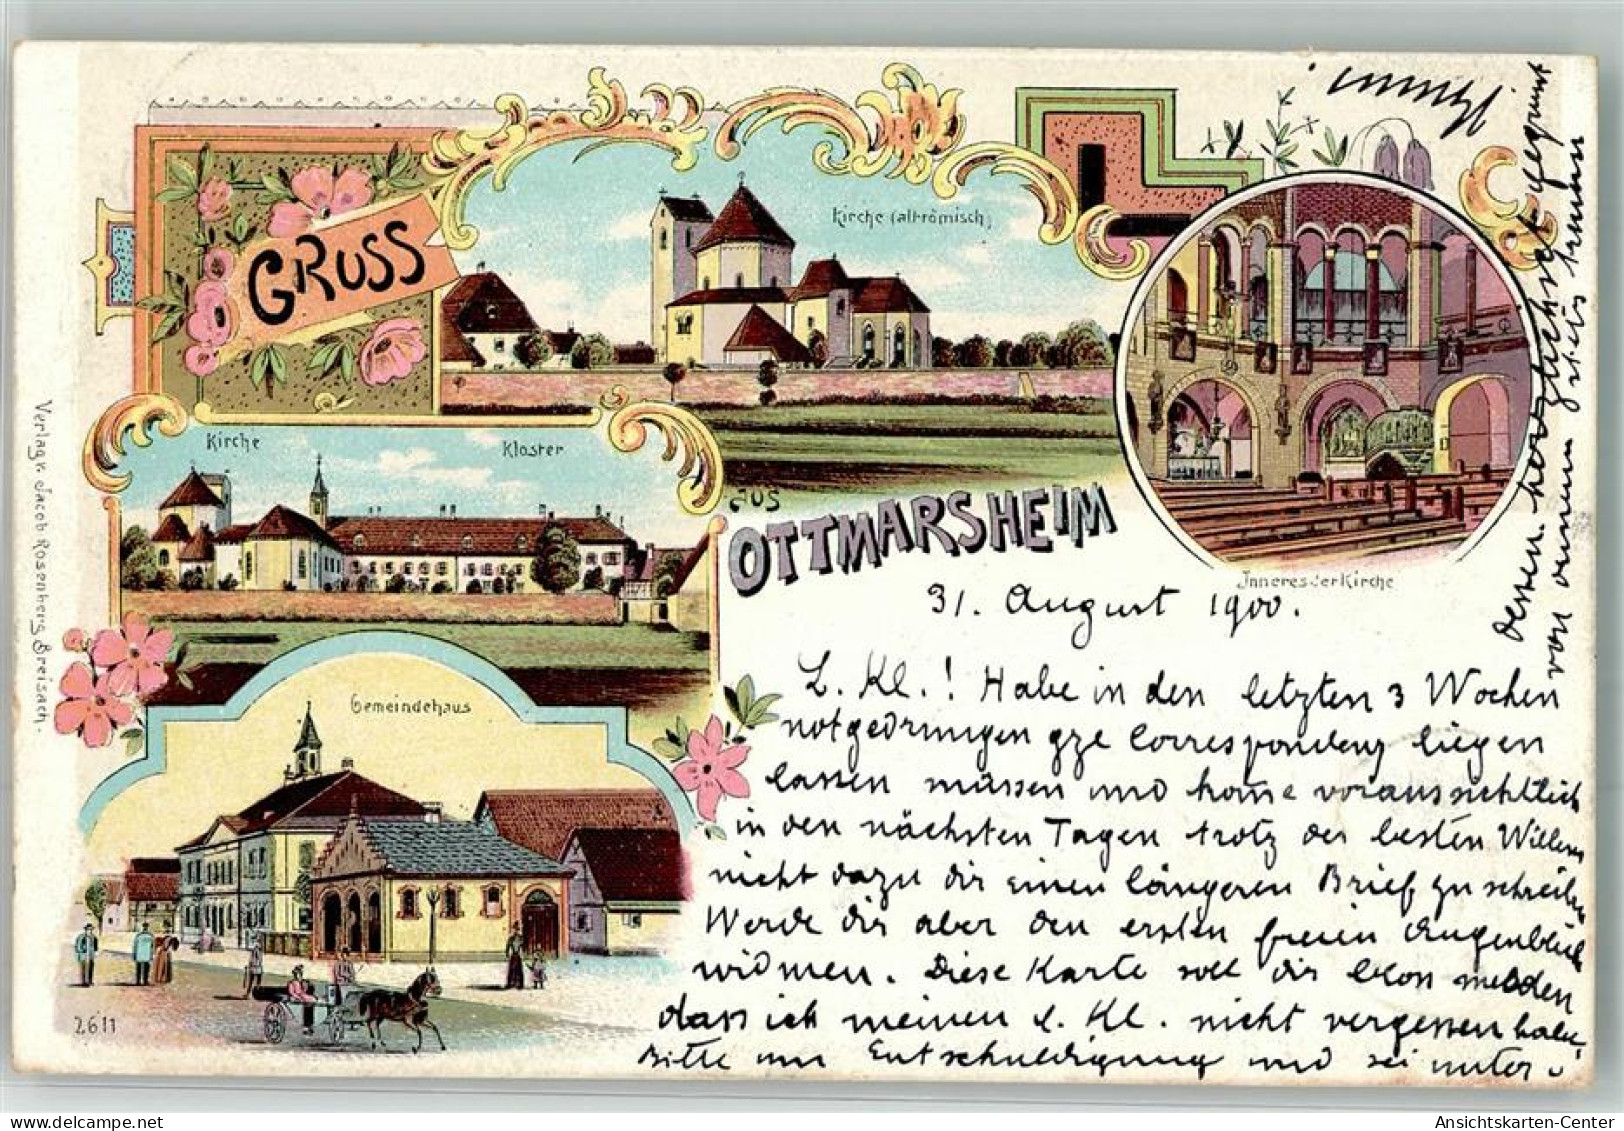 GRUSS
Kirche (alt-römisch)
Kirche
Kloster
aus
OTTMARSHEIM
Inneres der Kirche
Gemeindehaus
Verlag v. Jacob Rosenberg, Breisach.
2611
31. August 1900.
L. Kl.! Habe in den letzten 3 Wochen
notgedrungen gze Correspondenz liegen
lassen müssen und kome voraussichtlich
in den nächsten Tagen trotz des besten Willens
nicht dazu dir einen längeren Brief zu schreiben
Werde dir aber den ersten freien Augenblick
widmen. Diese Karte soll dir blos melden
dass ich meinen l. Kl. nicht vergessen habe.
Bitte um Entschuldigung und sei unter
dessen herzlichst gegrüsst
von deinem stets treuen
Ansichtskarten-Center